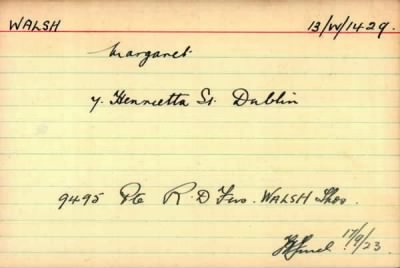 WALSH 13/W/1429.
Margaret
7. Henrietta St. Dublin
9495 Pte R. D Fus. WALSH Thos.
17/9/23